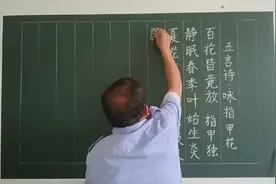 五言诗:咏指甲花
百花皆竟放 指甲独
静眠春季叶始生炎
夏花